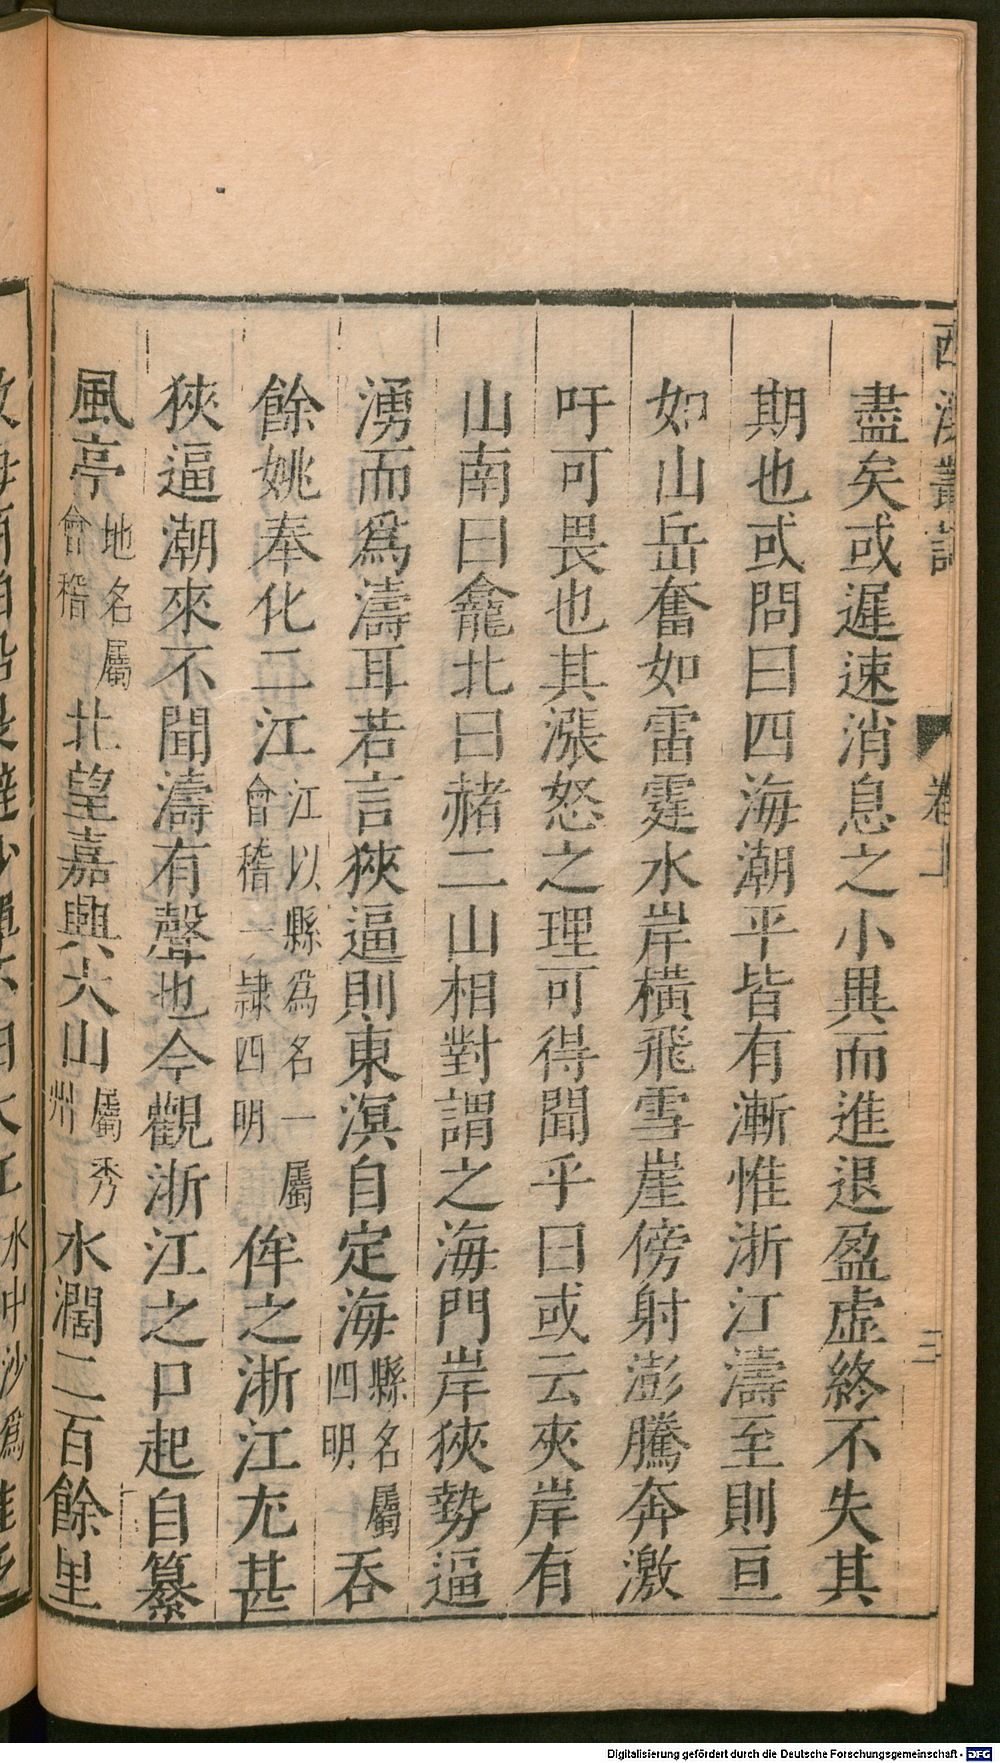 盡矣或遲速消息之小異而進退盈虛終不失其
期也或問曰四海潮平皆有漸惟浙江濤至則亘
如山岳奮如雷霆水岸橫飛雪崖傍射澎騰奔激
吁可畏也其漲怒之理可得聞乎曰或云夾岸有
山南曰龕北曰赭二山相對謂之海門岸狹勢逼
湧而爲濤耳若言狹逼則東溟自定海縣名屬四明吞
餘姚奉化二江江以縣爲名一屬會稽一隷四明侔之浙江尤甚
狹逼潮來不聞濤有聲也今觀浙江之口起自纂
風亭地名屬會稽北望嘉興大山屬秀州水濶二百餘里
卷上
三
Digitalisierung gefördert durch die Deutsche Forschungsgemeinschaft - DFG